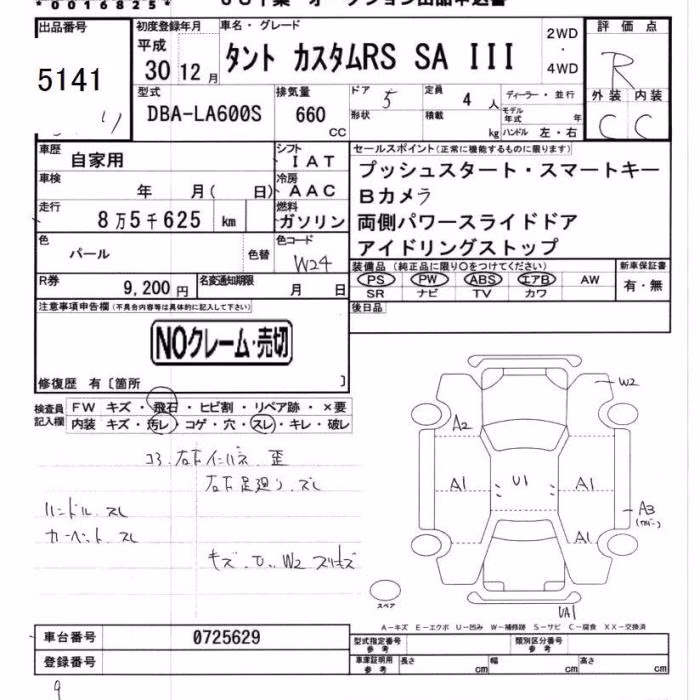 *0016825*
出品番号
5141
初度登録年月
平成
30 12 月
車名・グレード
タント カスタムRS SA III
2WD
・
4WD
評価点
R
外装 内装
C C
型式
DBA-LA600S
排気量
660
cc
ドア
5
形状
定員
4 人
積載
kg
ディーラー・並行
モデル年式 年
ハンドル 左・右
車歴
自家用
シフト
IAT
車検
年 月( 日)
冷房
AAC
走行
8万5千625 km
燃料
ガソリン
色
パール
色替
色コード
W24
R券
9,200 円
名変通知期限
月 日
セールスポイント(正常に機能するものに限ります)
プッシュスタート・スマートキー
Bカメラ
両側パワースライドドア
アイドリングストップ
装備品(純正品に限り○をつけてください)
PS PW ABS エアB AW
SR ナビ TV カワ
新車保証書
有・無
後日品
注意事項申告欄(不具合内容等は具体的に記入して下さい)
NOクレーム・売切
修復歴 有〔箇所 〕
検査員記入欄
FW キズ・飛石・ヒビ割・リペア跡・×要
内装 キズ・汚レ・コゲ・穴・スレ・キレ・破レ
ハンドル スレ
カーペット スレ
W2
A2
A1
U1
A1
A3
A1
UA1
スペア
A-キズ E-エクボ U-凹み W-補修跡 S-サビ C-腐食 XX-交換済
車台番号
0725629
登録番号
型式指定番号
参考
類別区分番号
参考
車庫証明用
参考
長さ cm
幅 cm
高さ cm